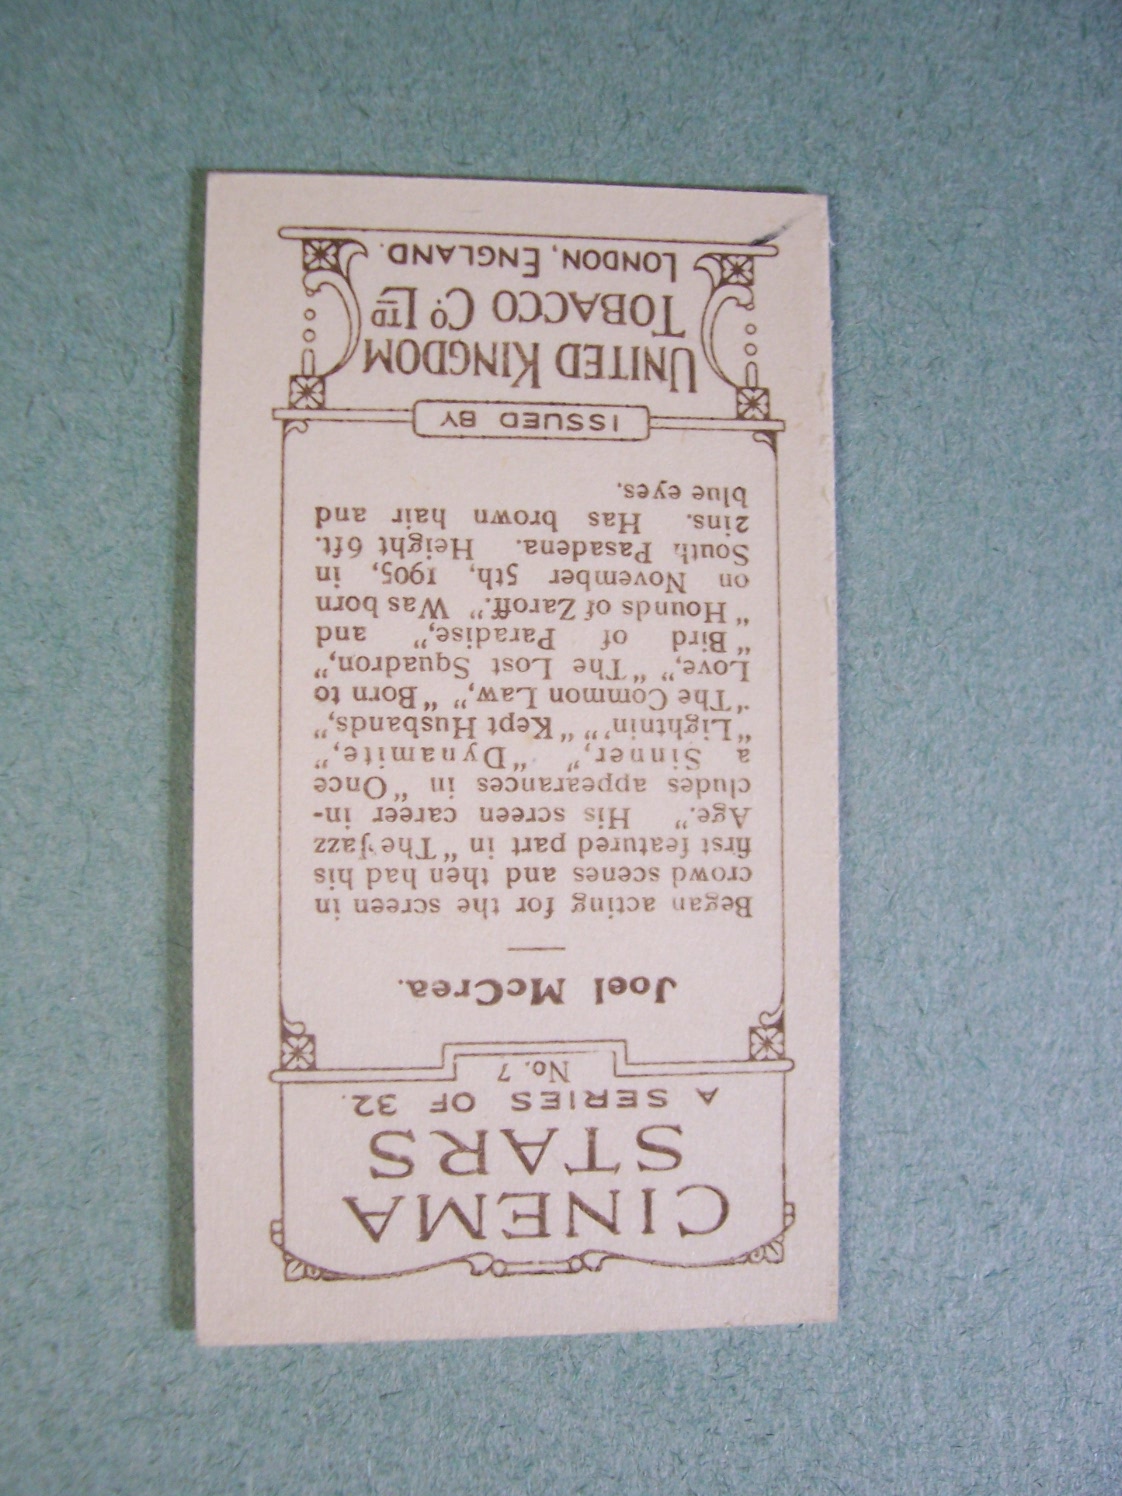 CINEMA
STARS
A SERIES OF 32.
No. 7
Joel McCrea.
Began acting for the screen in
crowd scenes and then had his
first featured part in "The Jazz
Age." His screen career in-
cludes appearances in "Once
a Sinner," "Dynamite,"
"Lightnin'" "Kept Husbands,"
"The Common Law," "Born to
Love," "The Lost Squadron,"
"Bird of Paradise," and
"Hounds of Zaroff." Was born
on November 5th, 1905, in
South Pasadena. Height 6ft.
2ins. Has brown hair and
blue eyes.
ISSUED BY
UNITED KINGDOM
TOBACCO CO LTD
LONDON, ENGLAND.